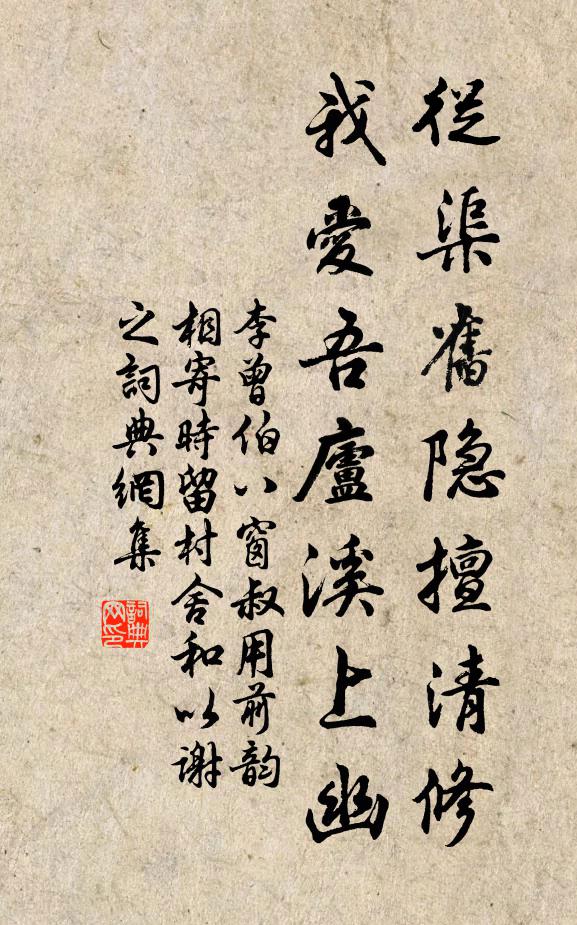 從渠舊隐擅清修
我愛吾廬溪上幽
李曾伯八窗叔用前韵
相寄時留村舍和以謝
之詞典網集
詞典
网印